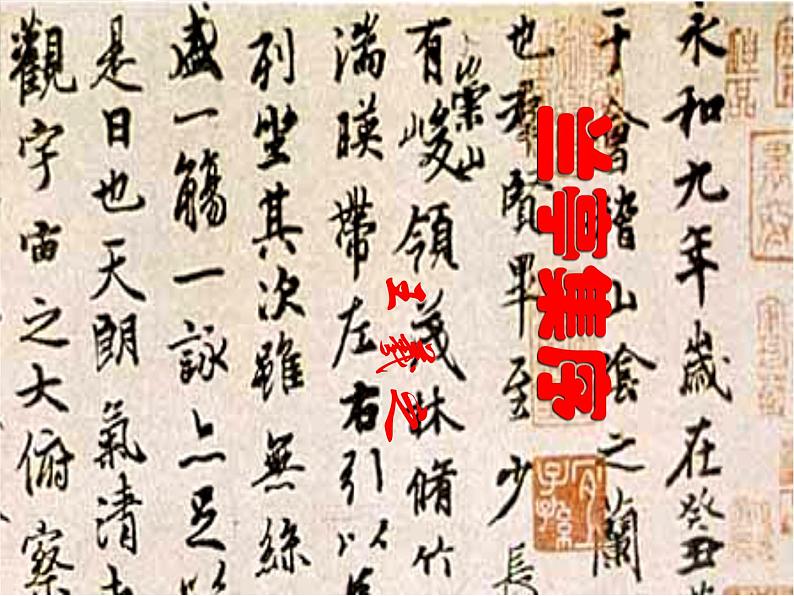 兰亭集序
王羲之
永和九年歲在癸丑
于會稽山陰之蘭
也羣賢畢至少長
有崇山峻領茂林脩竹
湍暎帶左右引以
列坐其次雖無絲
盛一觴一詠亦足以
是日也天朗氣清
觀宇宙之大俯察